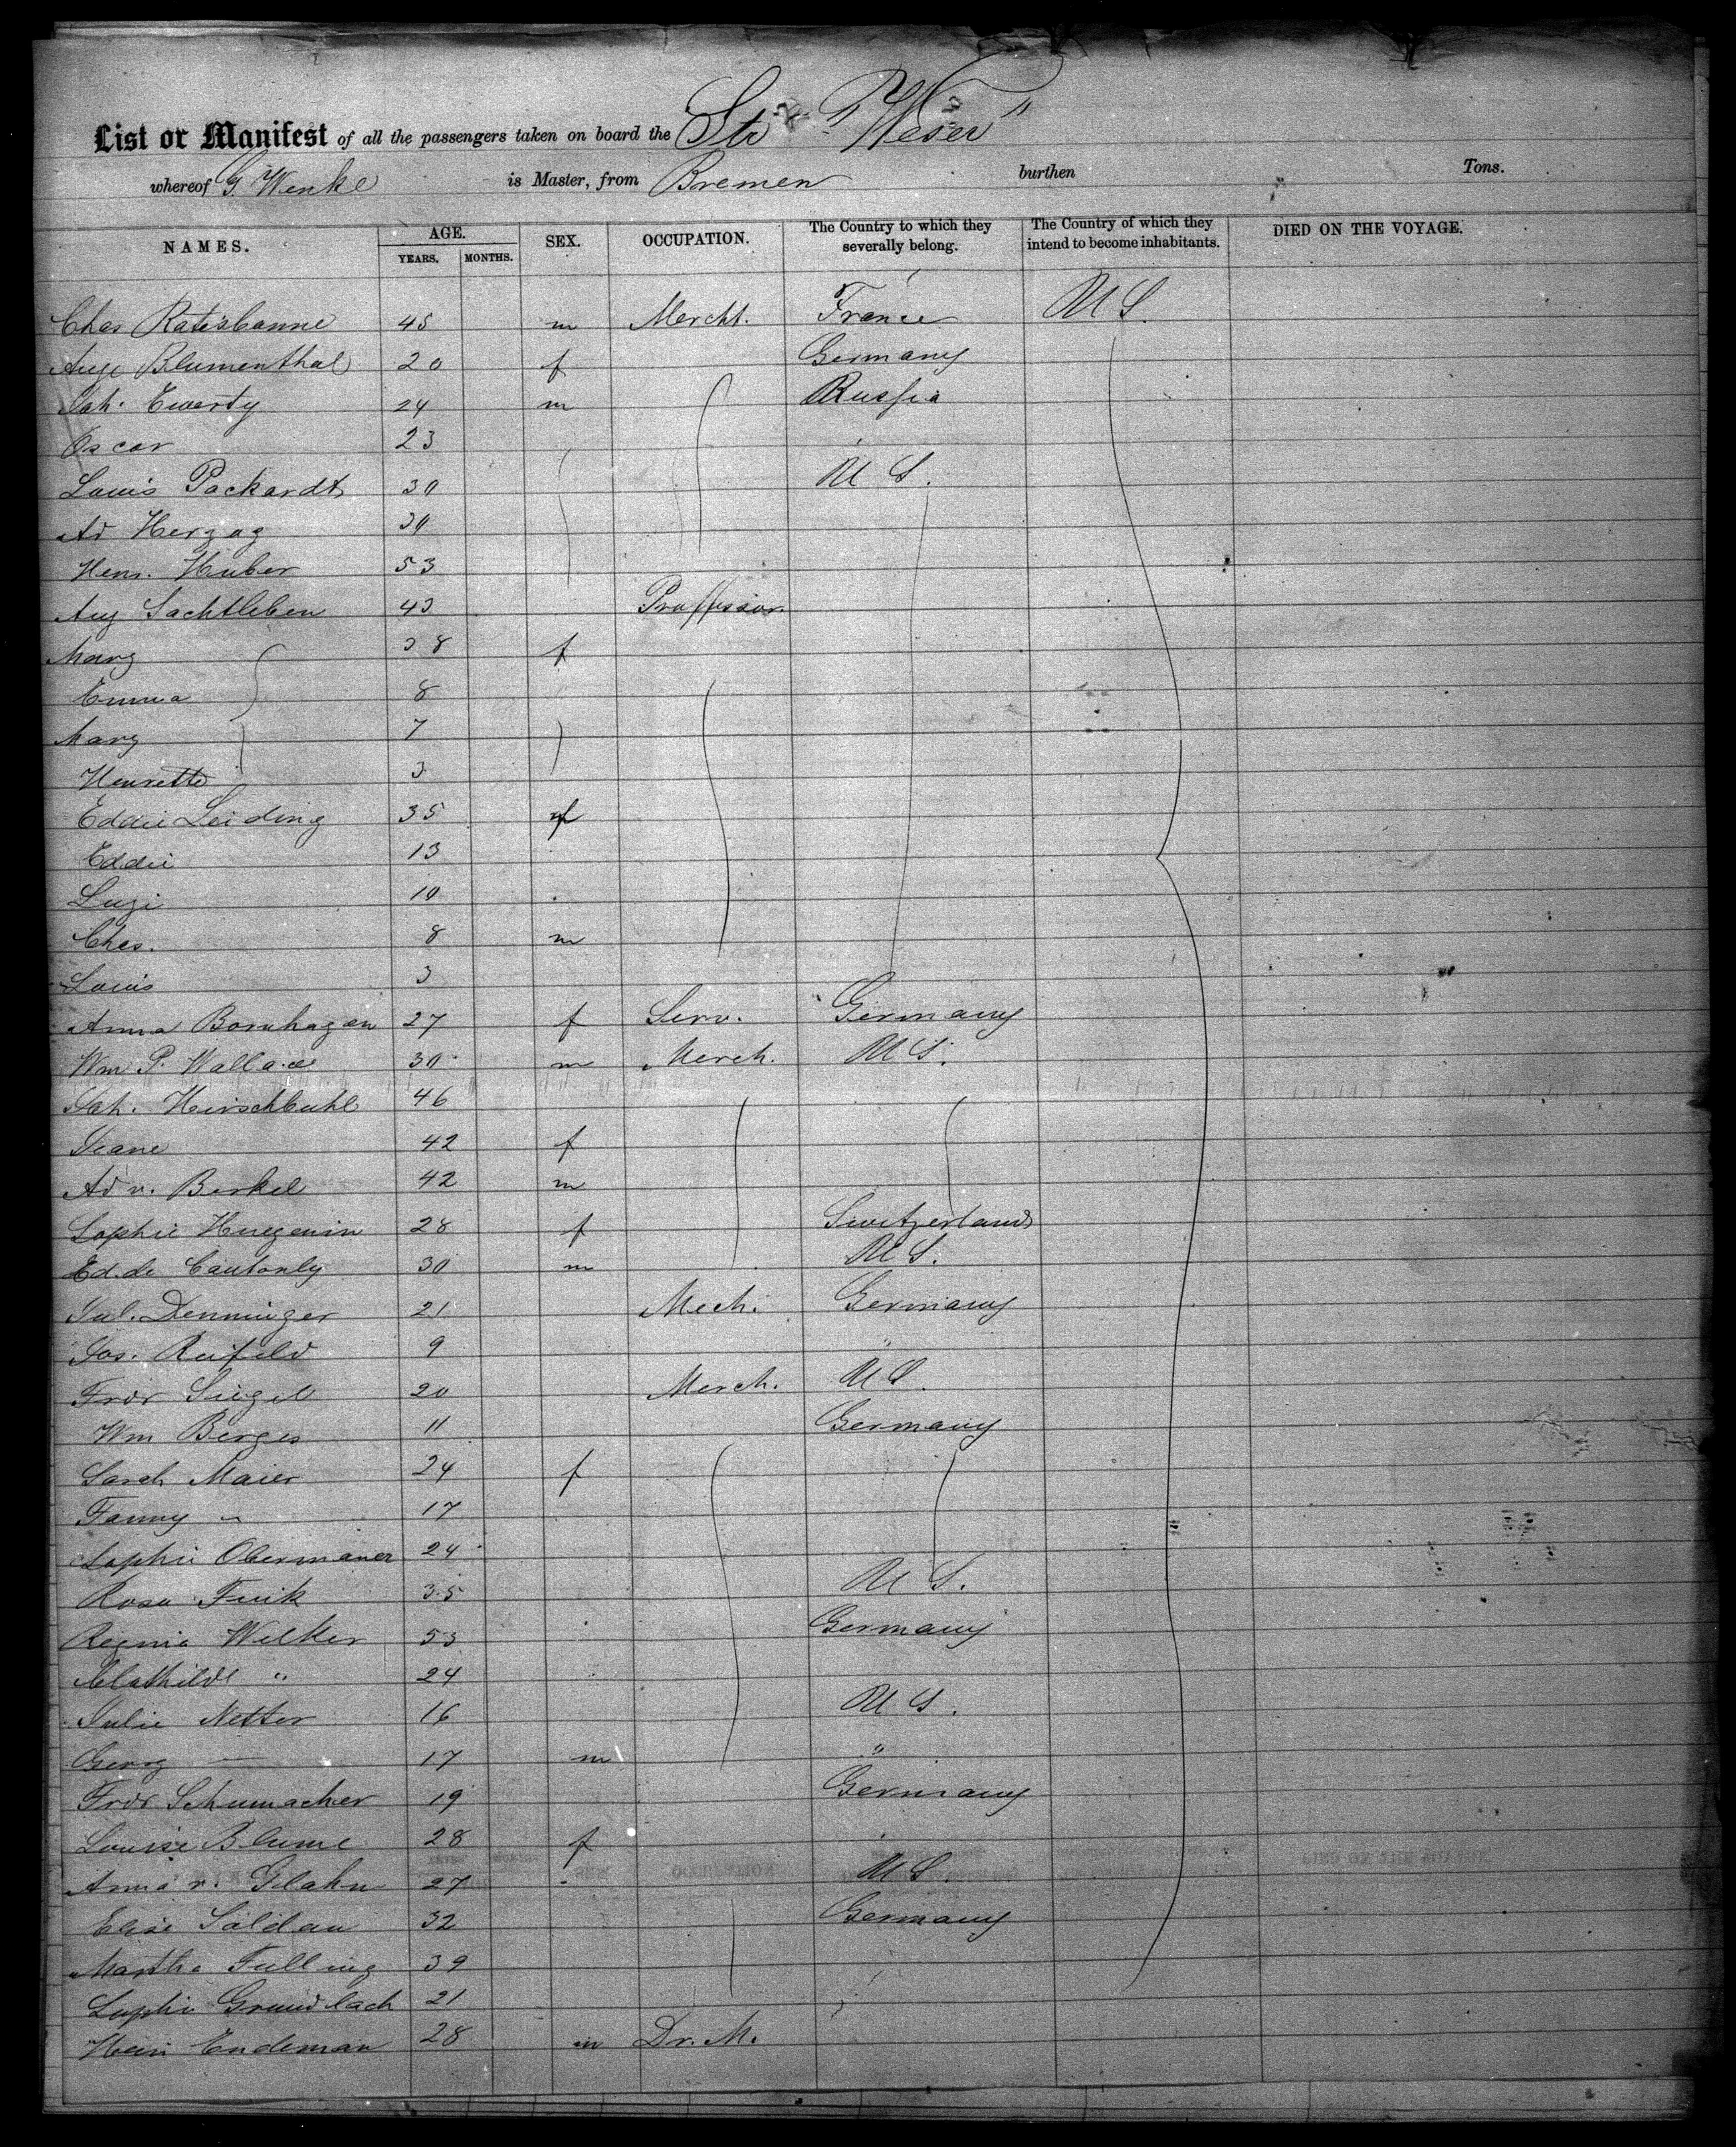 List or Manifest of all the passengers taken on board the Str "Weser"
whereof G. Wenke is Master, from Bremen burthen Tons.
NAMES. AGE. YEARS. MONTHS. SEX. OCCUPATION. The Country to which they severally belong. The Country of which they intend to become inhabitants. DIED ON THE VOYAGE.
Chas Ratisbonne 45 m Mercht. France U S.
Auge Blumenthal 20 f Germany
Joh. Ewerty 24 m Russia
Oscar 23
Louis Packardt 30 U S.
Ad Herzog 30
Hem. Huber 53
Aug Sachtleben 43 Proffessor
Mary 38 f
Emma 8
Mary 7
Henrette 3
Eddie Leiding 35 f
Eddie 13
Luzi 10
Chas. 8 m
Louis 3
Anna Bornhagen 27 f Serv. Germany
Wm P. Wallace 30 m Merch. U S.
Joh. Hirschbuhl 46
Jeane 42 f
Ad v. Berkel 42 m
Sophie Huegenin 28 f Switzerland
Ed. de Cautonly 30 m U S.
Jul. Denninger 21 Mech. Germany
Jos. Reifeld 9 "
Fror Siegel 20 Merch. U S.
Wm Berges 11 Germany
Sarah Maier 24 f
Fanny " 17
Sophie Obermaner 24
Rosa Fink 35 U S.
Regnia Welker 53 Germany
Mathilde " 24
Julie Netter 16 U S.
Georg — 17 m "
Frdr Schumacher 19 Germany
Louise Blume 28 f
Anna v. Glahn 27 U S.
Elise Soldan 32 Germany
Martha Fulling 39
Sophie Grundlach 21
Hein Endeman 28 m Dr. M.